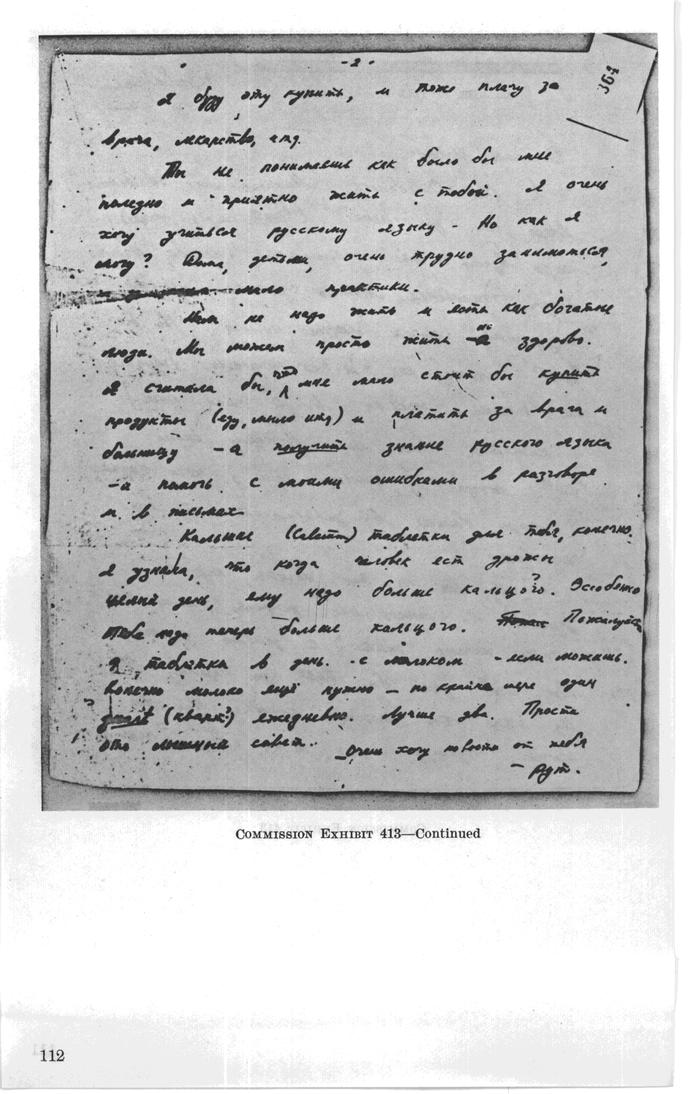 - 2 -
364
Я буду эту купить, и тоже плачу за
врача, лекарство, итд.
Ты не понимаешь как было бы мне
полезно и приятно жить с тобой. Я очень
хочу учиться русскому языку - Но как я
могу? Дома, детьми, очень трудно заниматься,
мало практики.
Нам не надо жить и есть как богатые
люди. Мы можем просто жить здорово.
Я считала бы, что мне мало стоит бы купить
продукты (еду, мыло итд) и платить за врача и
больницу - а получить знание русского языка
- и помочь с моими ошибками в разговоре
и в письмах.
Кальцые (Calcium) таблетки для тебя, конечно.
Я узнала, что когда человек ест дрожы
целый день, ему надо больше кальцого?. Эсобенно
тебе надо теперь больше кальцого. Пожалуйста
таблетка в день. - с молоком - если можешь.
Конечно молоко ещё нужно - по крайне мере один
(кварт?) ежедневно. Лучше два. Просто
это лышный совет. Очень хочу новости от тебя
- Рут.
COMMISSION EXHIBIT 413—Continued
112